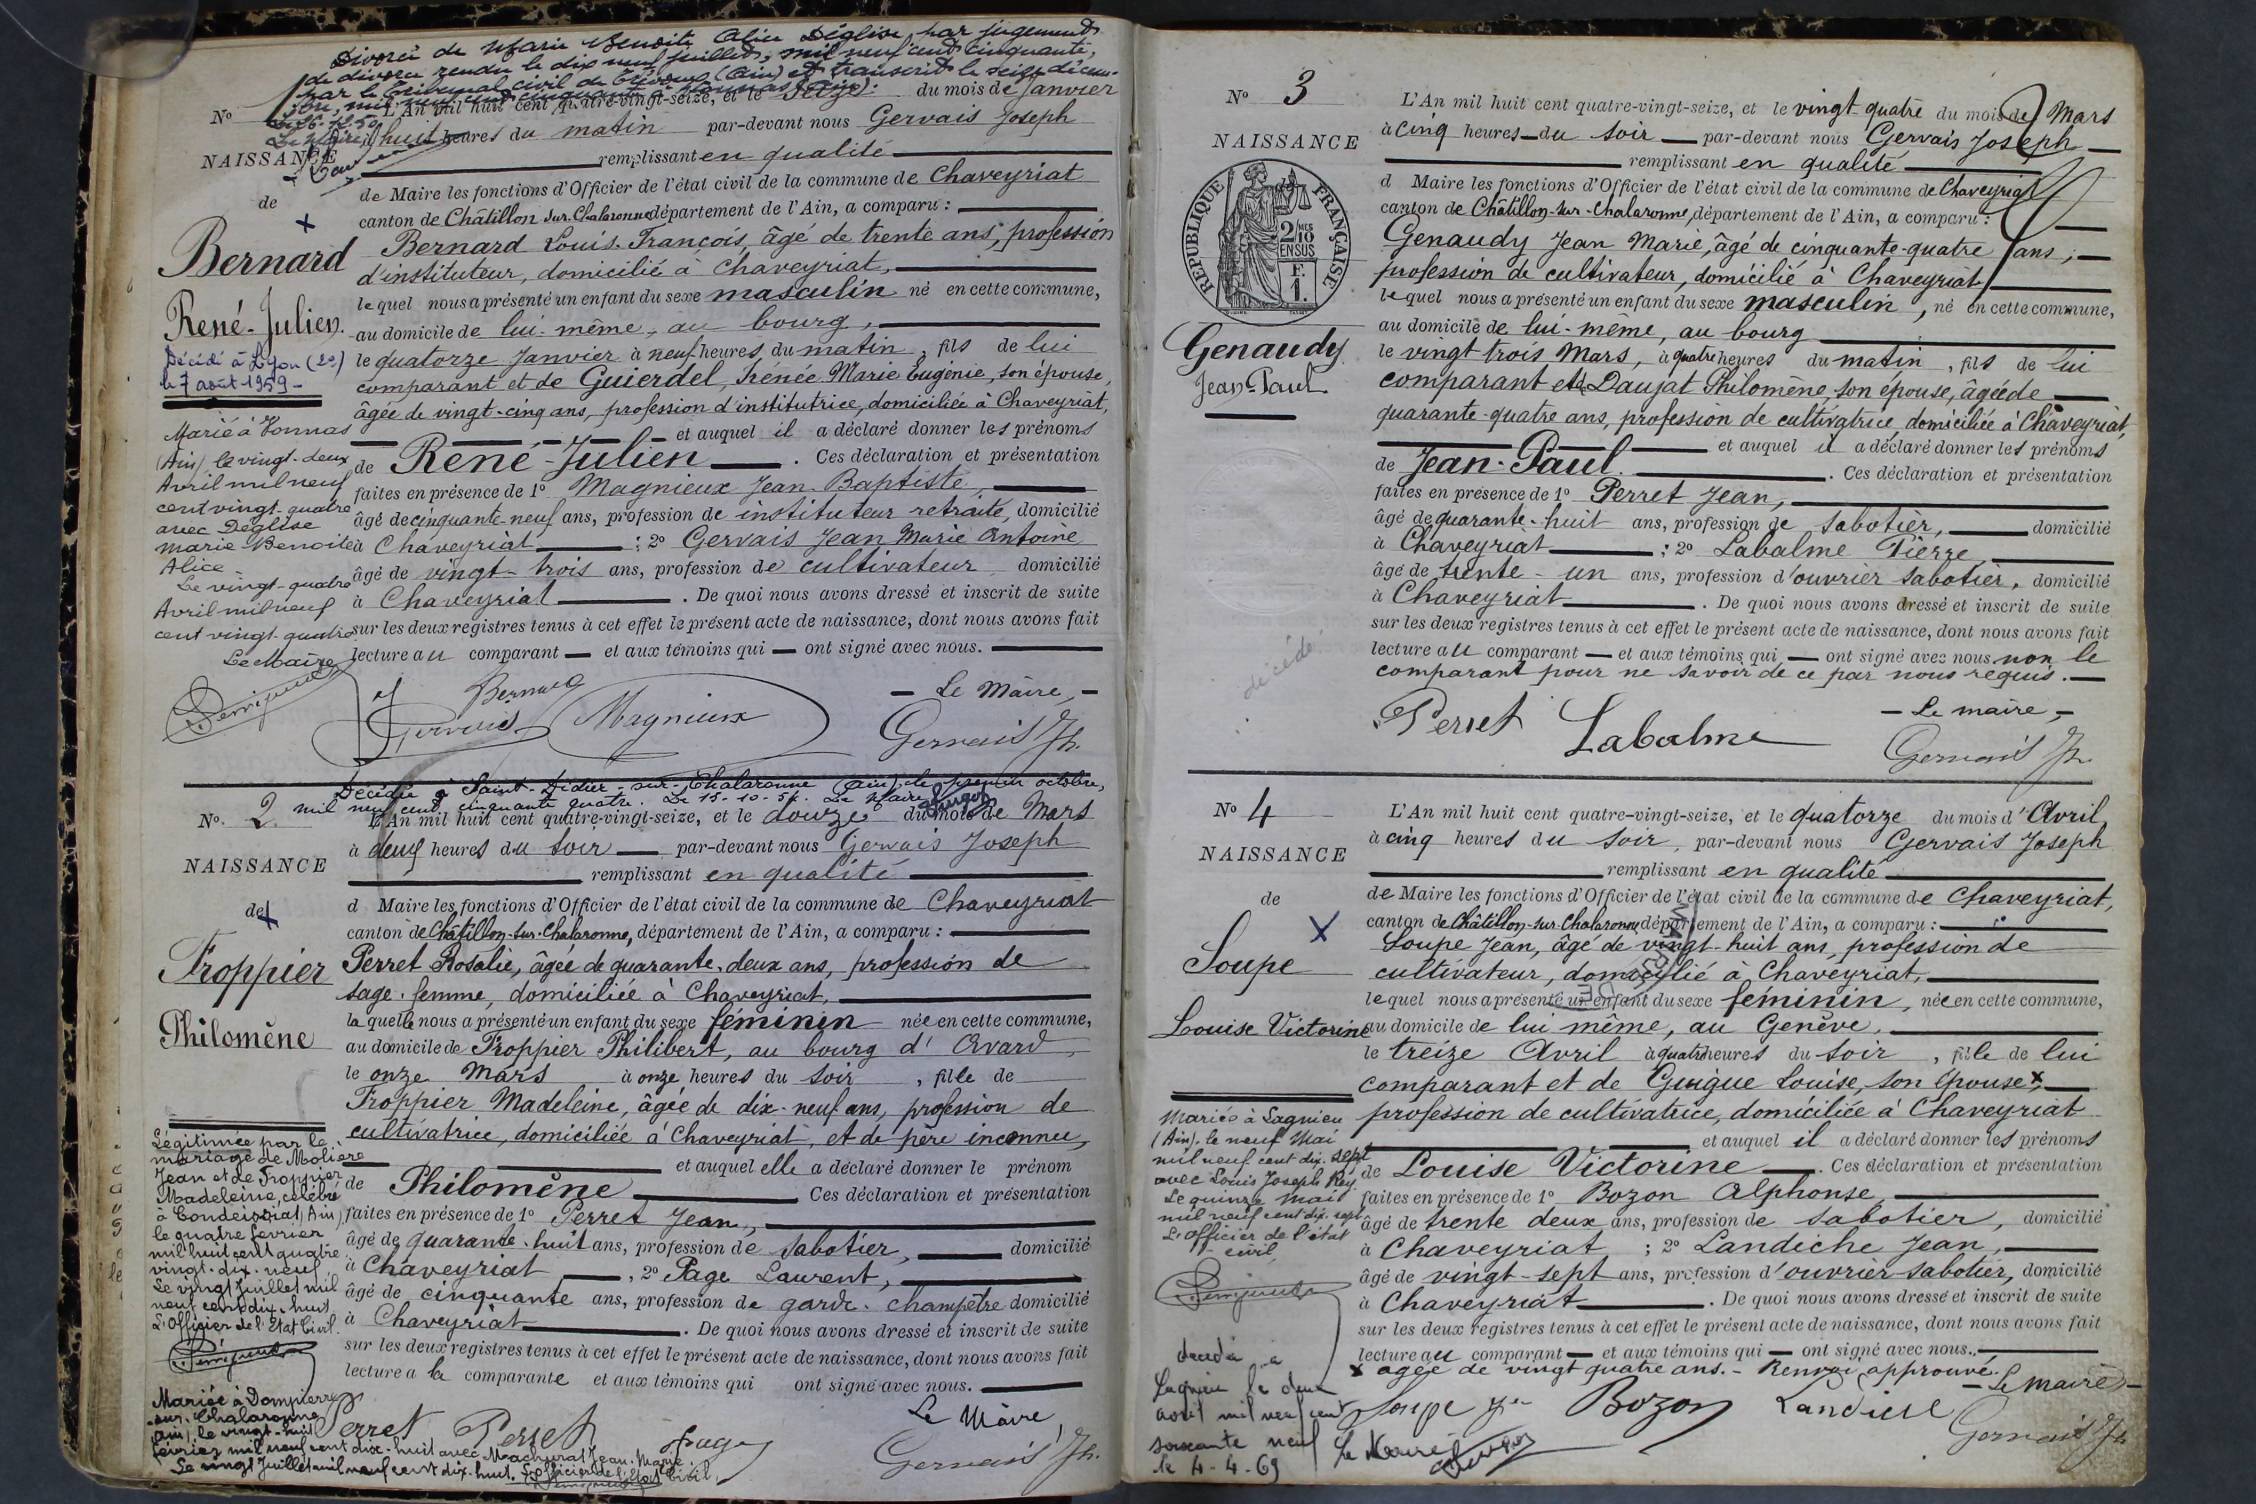 Divorcé de Marie Benoite Alice Déglise par jugement
de divorce rendu le dix neuf juillet, mil neuf cent cinquante,
par le tribunal civil de Trévoux (Ain) et transcrit le seize décem-
No 1
L'An mil huit cent quatre-vingt-seize, et le seize du mois de Janvier
à huit heures du matin par-devant nous Gervais Joseph
NAISSANCE
remplissant en qualité
de Maire les fonctions d'Officier de l'état civil de la commune de Chaveyriat
de
canton de Châtillon sur Chalaronne département de l'Ain, a comparu :
Bernard
René-Julien.
Bernard Louis-François, âgé de trente ans, profession
d'instituteur, domicilié à Chaveyriat,
lequel nous a présenté un enfant du sexe masculin né en cette commune,
au domicile de lui-même, au bourg,
le quatorze Janvier à neuf heures du matin, fils de lui
comparant et de Guierdel, Irénée Marie Eugénie, son épouse,
âgée de vingt-cinq ans, profession d'institutrice, domiciliée à Chaveyriat,
et auquel il a déclaré donner les prénoms
de René-Julien. Ces déclaration et présentation
faites en présence de 1o Magnieux Jean Baptiste,
âgé de cinquante-neuf ans, profession de instituteur retraité, domicilié
à Chaveyriat ; 2o Gervais Jean Marie Antoine
âgé de vingt-trois ans, profession de cultivateur domicilié
à Chaveyriat. De quoi nous avons dressé et inscrit de suite
sur les deux registres tenus à cet effet le présent acte de naissance, dont nous avons fait
lecture au comparant et aux témoins qui ont signé avec nous.
Décédé à Lyon (2e)
le 7 août 1959-
Marié à Vonnas
(Ain) le vingt-deux
Avril mil neuf
cent vingt-quatre
avec Déglise
Marie Benoite
Alice
Le vingt-quatre
Avril mil neuf
cent vingt-quatre
Le Maire
Bernard
Gervais
Magnieux
- Le Maire, -
Gervais Jh.
Décédée à Saint-Didier-sur-Chalaronne (Ain), le premier octobre,
mil neuf cent cinquante quatre. Le 15-10-54. Le Maire
No. 2
L'An mil huit cent quatre-vingt-seize, et le douze du mois de Mars
à deux heures du soir par-devant nous Gervais Joseph
NAISSANCE
remplissant en qualité
de
d Maire les fonctions d'Officier de l'état civil de la commune de Chaveyriat
canton de Châtillon-sur-Chalaronne, département de l'Ain, a comparu :
Froppier
Philomène
Perret Rosalie, âgée de quarante-deux ans, profession de
sage-femme, domiciliée à Chaveyriat,
laquelle nous a présenté un enfant du sexe féminin née en cette commune,
au domicile de Froppier Philibert, au bourg d'Avard,
le onze Mars à onze heures du soir, fille de
Froppier Madeleine, âgée de dix-neuf ans, profession de
cultivatrice, domiciliée à Chaveyriat, et de père inconnu,
et auquel elle a déclaré donner le prénom
de Philomène Ces déclaration et présentation
faites en présence de 1o Perret Jean,
âgé de quarante-huit ans, profession de sabotier, domicilié
à Chaveyriat, 2o Page Laurent,
âgé de cinquante ans, profession de garde-champêtre domicilié
à Chaveyriat. De quoi nous avons dressé et inscrit de suite
sur les deux registres tenus à cet effet le présent acte de naissance, dont nous avons fait
lecture a la comparante et aux témoins qui ont signé avec nous.
Légitimée par le
mariage de Molière
Jean et de Froppier
Madeleine, célébré
à Condeissiat (Ain)
le quatre février
mil huit cent quatre
vingt-dix-neuf
Le vingt Juillet mil
neuf cent dix-huit
L'Officier de l'Etat Civil.
Mariée à Dompierre
sur-Chalaronne
(Ain) le vingt-huit
Février mil neuf cent dix-huit avec Machurat Jean-Marie.
Le vingt Juillet mil neuf cent dix-huit. L'Officier de l'Etat Civil.
Perret
Perret
Page
Le Maire
Gervais Jh.
No 3
L'An mil huit cent quatre-vingt-seize, et le vingt-quatre du mois de Mars
à cinq heures du soir par-devant nous Gervais Joseph
NAISSANCE
remplissant en qualité
d Maire les fonctions d'Officier de l'état civil de la commune de Chaveyriat
canton de Châtillon-sur-Chalaronne, département de l'Ain, a comparu :
RÉPUBLIQUE FRANÇAISE
2/10 EN SUS
F. 1.
Genaudy
Jean-Paul
Genaudy Jean Marie, âgé de cinquante-quatre ans,
profession de cultivateur, domicilié à Chaveyriat
lequel nous a présenté un enfant du sexe masculin, né en cette commune,
au domicile de lui-même, au bourg
le vingt trois Mars, à quatre heures du matin, fils de lui
comparant et de Daujat Philomène, son épouse, âgée de
quarante-quatre ans, profession de cultivatrice, domiciliée à Chaveyriat,
et auquel il a déclaré donner les prénoms
de Jean-Paul. Ces déclaration et présentation
faites en présence de 1o Perret Jean,
âgé de quarante-huit ans, profession de sabotier, domicilié
à Chaveyriat ; 2o Labalme Pierre,
âgé de trente-un ans, profession d'ouvrier sabotier, domicilié
à Chaveyriat. De quoi nous avons dressé et inscrit de suite
sur les deux registres tenus à cet effet le présent acte de naissance, dont nous avons fait
lecture au comparant et aux témoins qui ont signé avec nous non le
comparant pour ne savoir de ce par nous requis.
décédé
Perret
Labalme
- Le maire, -
Gervais Jh
No 4
L'An mil huit cent quatre-vingt-seize, et le quatorze du mois d'Avril,
à cinq heures du soir, par-devant nous Gervais Joseph
NAISSANCE
remplissant en qualité
de
de Maire les fonctions d'Officier de l'état civil de la commune de Chaveyriat,
canton de Châtillon-sur-Chalaronne, département de l'Ain, a comparu :
Soupe
Louise Victorine
Soupe Jean, âgé de vingt-huit ans, profession de
cultivateur, domicilié à Chaveyriat,
lequel nous a présenté un enfant du sexe féminin, née en cette commune,
au domicile de lui même, au Genève,
le treize Avril à quatre heures du soir, fille de lui
comparant et de Guigue Louise, son épouse x
profession de cultivatrice, domiciliée à Chaveyriat
et auquel il a déclaré donner les prénoms
de Louise Victorine. Ces déclaration et présentation
faites en présence de 1o Bozon Alphonse,
âgé de trente deux ans, profession de sabotier, domicilié
à Chaveyriat ; 2o Landiche Jean,
âgé de vingt-sept ans, profession d'ouvrier-sabotier, domicilié
à Chaveyriat. De quoi nous avons dressé et inscrit de suite
sur les deux registres tenus à cet effet le présent acte de naissance, dont nous avons fait
lecture au comparant et aux témoins qui ont signé avec nous.
x âgée de vingt quatre ans. - Renvoi approuvé.
Mariés à Lagnieu
(Ain), le neuf Mai
mil neuf cent dix-sept
avec Louis Joseph Rey.
Le quinze mai
mil neuf cent dix-sept
L'Officier de l'état
civil,
décédée à
Lagnieu le deux
avril mil neuf cent
soixante neuf
le 4-4-69
Soupe Jn
Bozon
Landiche
- Le Maire -
Gervais Jh